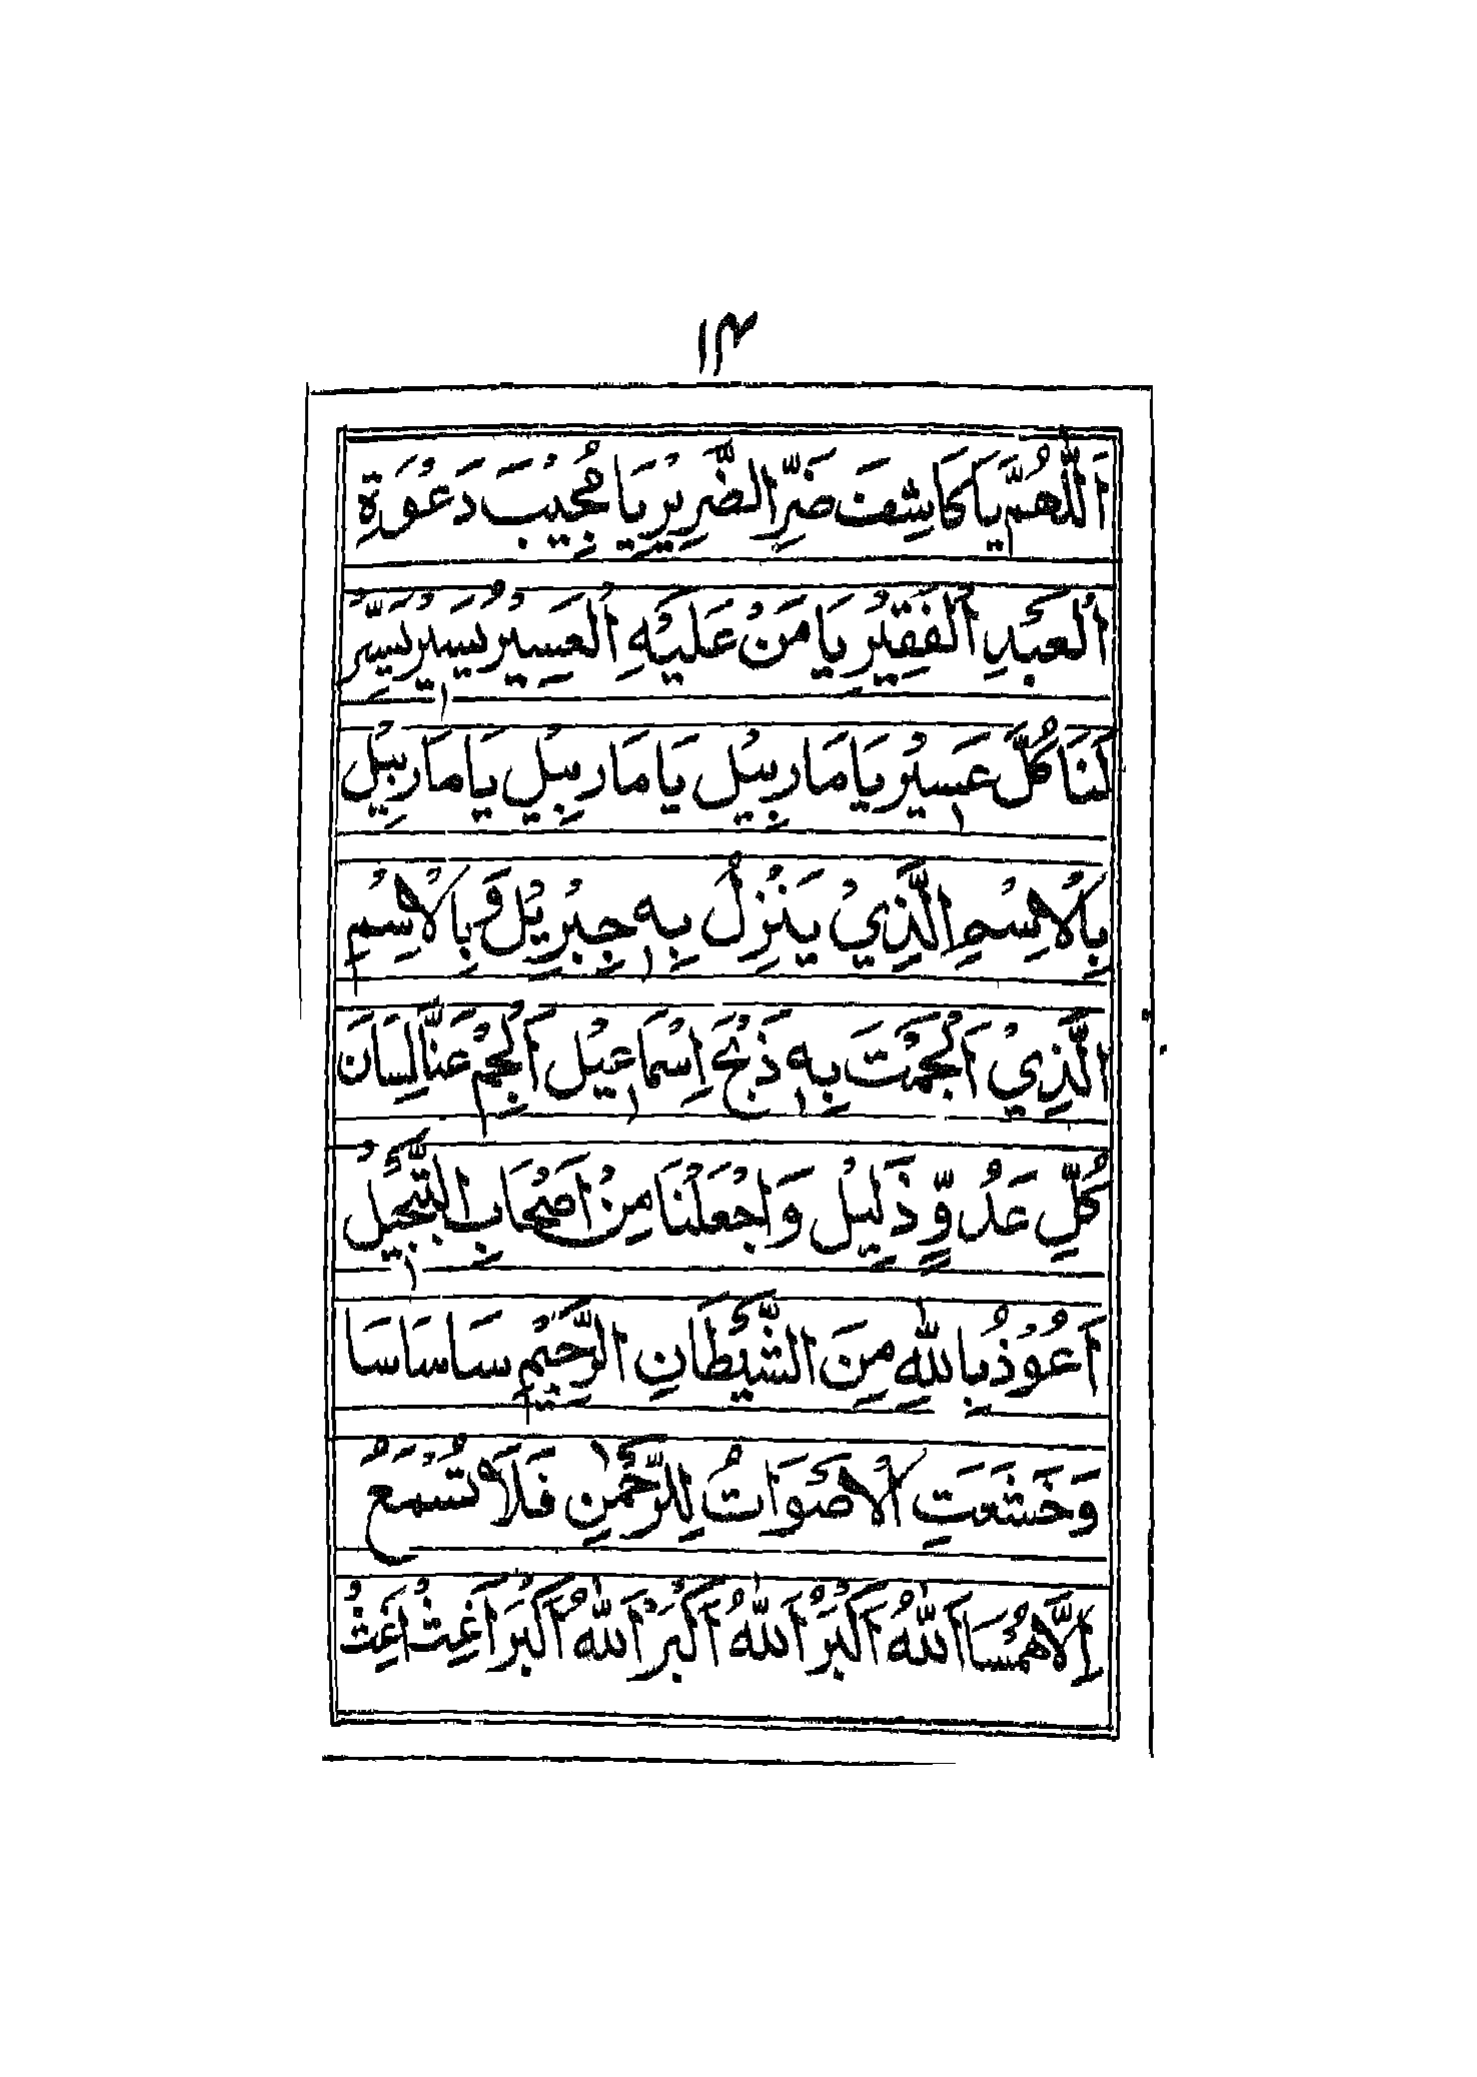 ۱۴
اَللّٰهُمَّ يَا كَاشِفَ ضَرِّ الضَّرِيْرِ يَا مُجِيْبَ دَعْوَةِ
الْعَبْدِ الْفَقِيْرِ يَا مَنْ عَلَيْهِ الْعَسِيْرُ يَسِيْرٌ يَسِّرْ
لَنَا كُلَّ عَسِيْرٍ يَا مَارِبِيْلُ يَا مَارِبِيْلُ يَا مَارِبِيْلُ
بِالْاِسْمِ الَّذِيْ يَنْزِلُ بِهٖ جِبْرِيْلُ وَبِالْاِسْمِ
الَّذِيْ اَلْجَمْتَ بِهٖ ذَبْحَ اِسْمَاعِيْلَ اَلْجِمْ عَنَّا لِسَانَ
كُلِّ عَدُوٍّ ذَلِيْلٍ وَاجْعَلْنَا مِنْ اَصْحَابِ التَّبْجِيْلِ
اَعُوْذُ بِاللّٰهِ مِنَ الشَّيْطَانِ الرَّجِيْمِ سَاسَاسَا
وَخَشَعَتِ الْاَصْوَاتُ لِلرَّحْمٰنِ فَلَا تَسْمَعُ
اِلَّا هَمْسًا اَللّٰهُ اَكْبَرْ اَللّٰهُ اَكْبَرْ اَللّٰهُ اَكْبَرْ اَغِثْ اَغِثْ